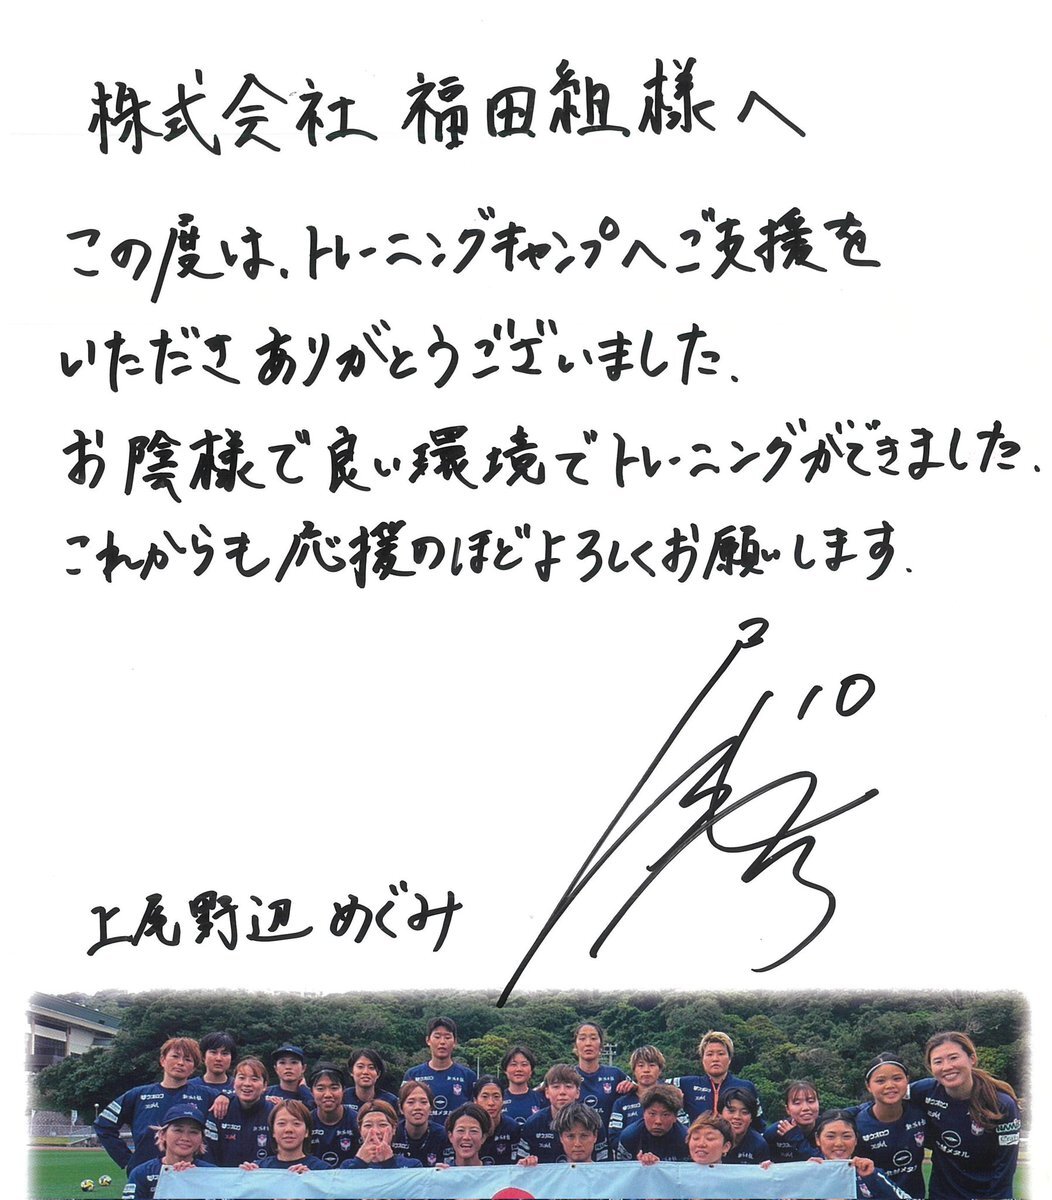 株式会社 福田組様へ
この度は、トレーニングキャンプへご支援を
いただきありがとうございました.
お陰様で良い環境でトレーニングができました.
これからも応援のほどよろしくお願いします.
10
上尾野辺 めぐみ